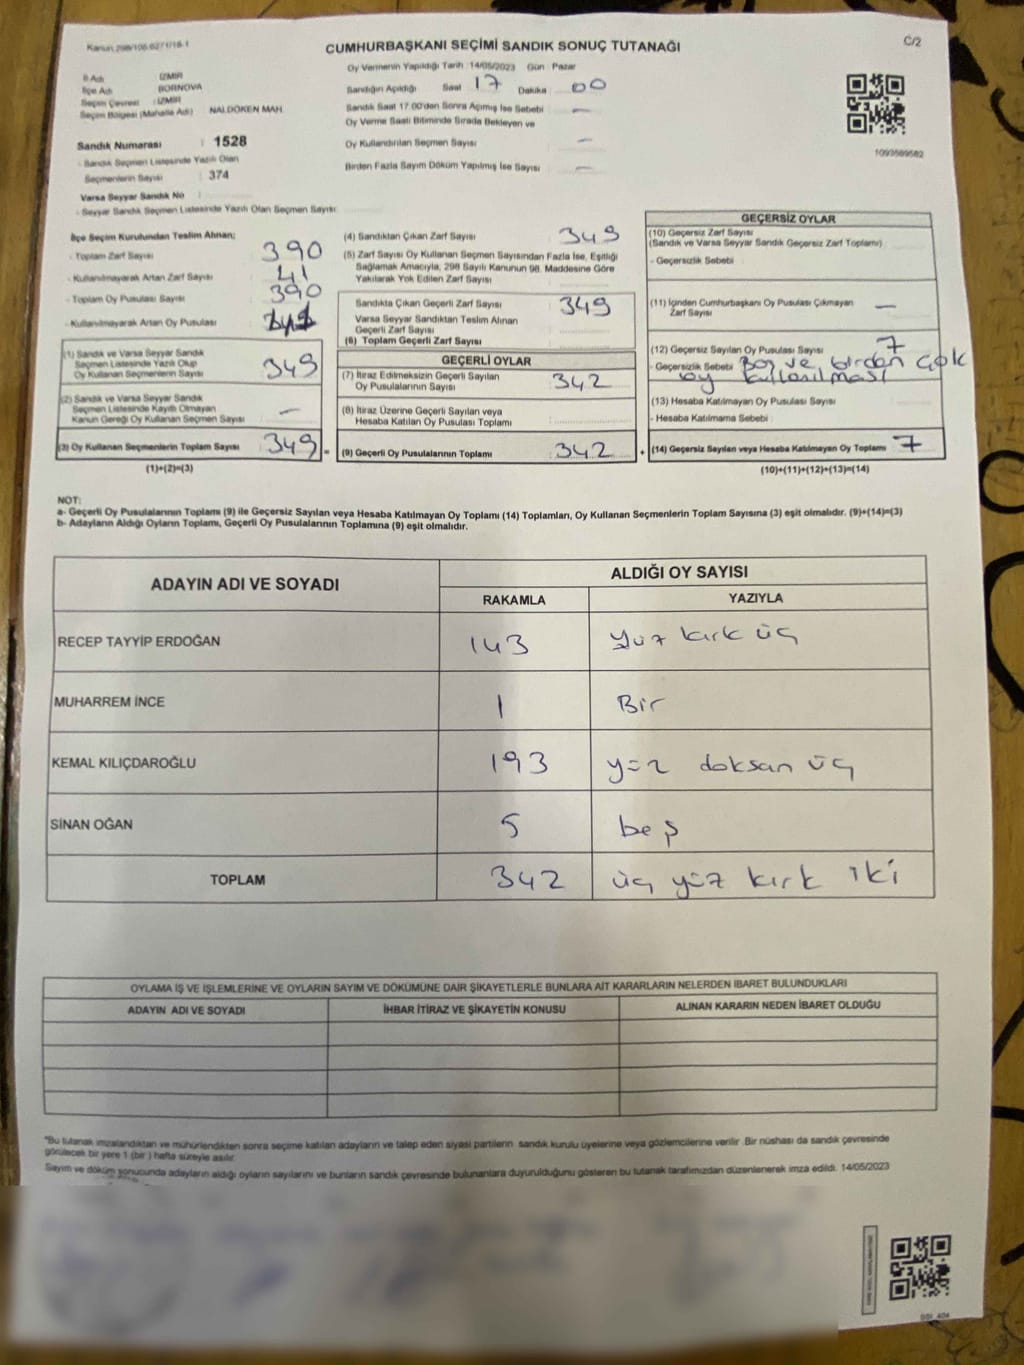 CUMHURBAŞKANI SEÇİMİ SANDIK SONUÇ TUTANAĞI
C/2
İl Adı İZMİR
İlçe Adı BORNOVA
Seçim Çevresi : İZMİR
Seçim Bölgesi (Mahalle Adı) NALDÖKEN MAH.
Sandık Numarası : 1528
- Sandık Seçmen Listesinde Yazılı Olan
Seçmenlerin Sayısı : 374
Varsa Seyyar Sandık No
- Seyyar Sandık Seçmen Listesinde Yazılı Olan Seçmen Sayısı:
Oy Vermenin Yapıldığı Tarih :14/05/2023 Gün : Pazar
Sandığın Açıldığı Saat 17 Dakika 00
Sandık Saat 17:00'den Sonra Açımış İse Sebebi : —
Oy Verme Saati Bitiminde Sırada Bekleyen ve
Oy Kullandırılan Seçmen Sayısı : —
Birden Fazla Sayım Döküm Yapılmış İse Sayısı : —
1093589582
İlçe Seçim Kurulundan Teslim Alınan;
- Toplam Zarf Sayısı : 390
- Kullanılmayarak Artan Zarf Sayısı : 41
- Toplam Oy Pusulası Sayısı : 390
- Kullanılmayarak Artan Oy Pusulası :
(1) Sandık ve Varsa Seyyar Sandık
Seçmen Listesinde Yazılı Olup
Oy Kullanan Seçmenlerin Sayısı : 349
(2) Sandık ve Varsa Seyyar Sandık
Seçmen Listesinde Kayıtlı Olmayan
Kanun Gereği Oy Kullanan Seçmen Sayısı : —
(3) Oy Kullanan Seçmenlerin Toplam Sayısı : 349 =
(1)+(2)=(3)
(4) Sandıktan Çıkan Zarf Sayısı : 349
(5) Zarf Sayısı Oy Kullanan Seçmen Sayısından Fazla İse, Eşitliği
Sağlamak Amacıyla, 298 Sayılı Kanunun 98. Maddesine Göre
Yakılarak Yok Edilen Zarf Sayısı :
Sandıkta Çıkan Geçerli Zarf Sayısı : 349
Varsa Seyyar Sandıktan Teslim Alınan
Geçerli Zarf Sayısı
(6) Toplam Geçerli Zarf Sayısı :
GEÇERLİ OYLAR
(7) İtiraz Edilmeksizin Geçerli Sayılan
Oy Pusulalarının Sayısı : 342
(8) İtiraz Üzerine Geçerli Sayılan veya
Hesaba Katılan Oy Pusulası Toplamı :
(9) Geçerli Oy Pusulalarının Toplamı : 342 +
GEÇERSİZ OYLAR
(10) Geçersiz Zarf Sayısı
(Sandık ve Varsa Seyyar Sandık Geçersiz Zarf Toplamı) :
- Geçersizlik Sebebi :
(11) İçinden Cumhurbaşkanı Oy Pusulası Çıkmayan
Zarf Sayısı : —
(12) Geçersiz Sayılan Oy Pusulası Sayısı : 7
- Geçersizlik Sebebi : Boş ve birden çok
oy kullanılması
(13) Hesaba Katılmayan Oy Pusulası Sayısı :
- Hesaba Katılmama Sebebi :
(14) Geçersiz Sayılan veya Hesaba Katılmayan Oy Toplamı : 7
(10)+(11)+(12)+(13)=(14)
NOT:
a- Geçerli Oy Pusulalarının Toplamı (9) ile Geçersiz Sayılan veya Hesaba Katılmayan Oy Toplamı (14) Toplamları, Oy Kullanan Seçmenlerin Toplam Sayısına (3) eşit olmalıdır. (9)+(14)=(3)
b- Adayların Aldığı Oyların Toplamı, Geçerli Oy Pusulalarının Toplamına (9) eşit olmalıdır.
ADAYIN ADI VE SOYADI ALDIĞI OY SAYISI
RAKAMLA YAZIYLA
RECEP TAYYİP ERDOĞAN 143 Yüz kırk üç
MUHARREM İNCE 1 Bir
KEMAL KILIÇDAROĞLU 193 yüz doksan üç
SİNAN OĞAN 5 beş
TOPLAM 342 üç yüz kırk iki
OYLAMA İŞ VE İŞLEMLERİNE VE OYLARIN SAYIM VE DÖKÜMÜNE DAİR ŞİKAYETLERLE BUNLARA AİT KARARLARIN NELERDEN İBARET BULUNDUKLARI
ADAYIN ADI VE SOYADI İHBAR İTİRAZ VE ŞİKAYETİN KONUSU ALINAN KARARIN NEDEN İBARET OLDUĞU
*Bu tutanak imzalandıktan ve mühürlendikten sonra seçime katılan adayların ve talep eden siyasi partilerin sandık kurulu üyelerine veya gözlemcilerine verilir .Bir nüshası da sandık çevresinde
görülecek bir yere 1 (bir ) hafta süreyle asılır.
Sayım ve döküm sonucunda adayların aldığı oyların sayılarını ve bunların sandık çevresinde bulunanlara duyurulduğunu gösteren bu tutanak tarafımızdan düzenlenerek imza edildi. 14/05/2023